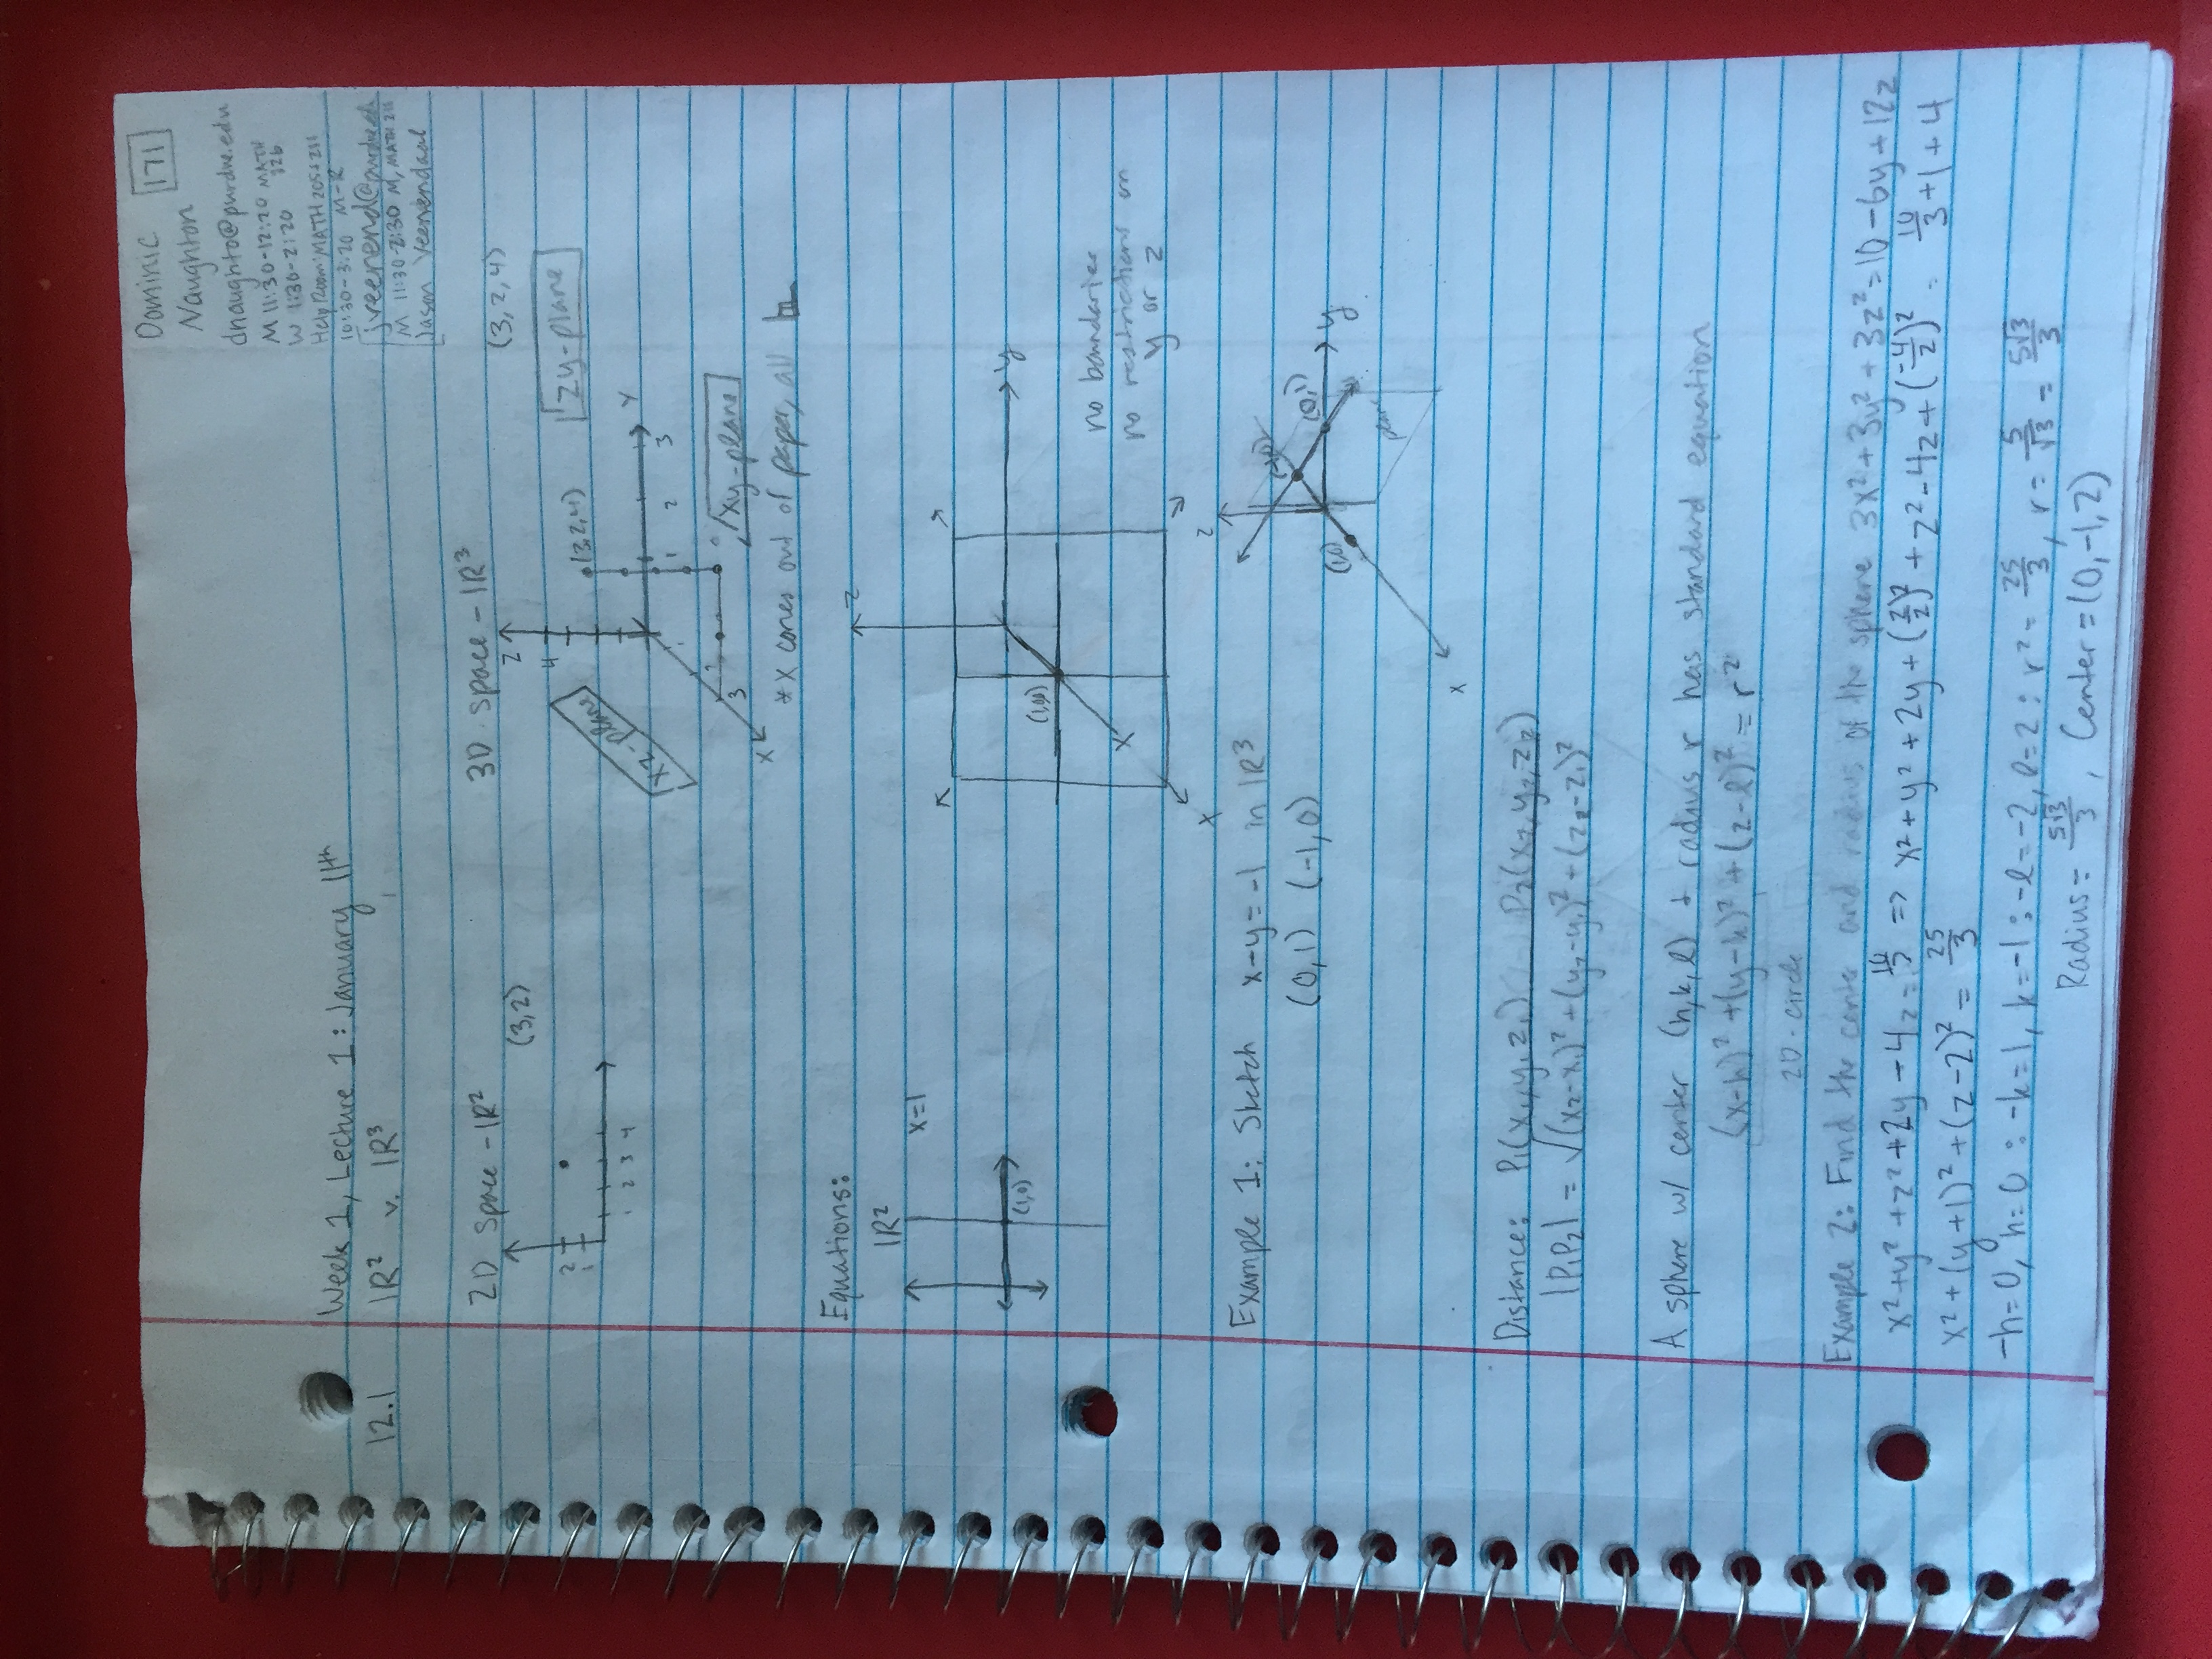 Dominic 171
Naughton
dnaughto@purdue.edu
M 11:30-12:20 MATH
W 1:30-2:20 826
Help Room: MATH 205+211
10:30-3:20 M-R
jveenend@purdue.edu
M 11:30-2:30 M, MATH 211
Jason Veenendaal
Week 1, Lecture 1: January 11th
12.1 ℝ² v. ℝ³
2D space - ℝ² 3D space - ℝ³
(3,2) (3,2,4)
z
4
(3,2,4)
zy-plane
xz-plane
2
1
1 2 3 4
1 2 3 y
1
2
3
xy-plane
x
* x comes out of paper, all
Equations:
ℝ² x=1
z
y
(1,0)
(1,0)
x
x
no boundaries
no restrictions on
y or z
Example 1: Sketch x-y=-1 in ℝ³
(0,1) (-1,0)
z
(0,1)
y
(1,0)
x
Distance: P₁(x₁,y₁,z₁) P₂(x₂,y₂,z₂)
|P₁P₂| = √(x₂-x₁)²+(y₂-y₁)²+(z₂-z₁)²
A sphere w/ center (h,k,l) + radius r has standard equation
(x-h)²+(y-k)²+(z-l)²=r²
2D-circle
Example 2: Find the center and radius of the sphere 3x²+3y²+3z²=10-6y+12z
x²+y²+z²+2y-4z=10/3 => x²+y²+2y+(2/2)²+z²-4z+(-4/2)²=10/3+1+4
x²+(y+1)²+(z-2)²=25/3
-h=0, h=0 : -k=1, k=-1 : -l=-2, l=2 : r²=25/3, r=5/√3=5√3/3
Radius=5√3/3, Center=(0,-1,2)